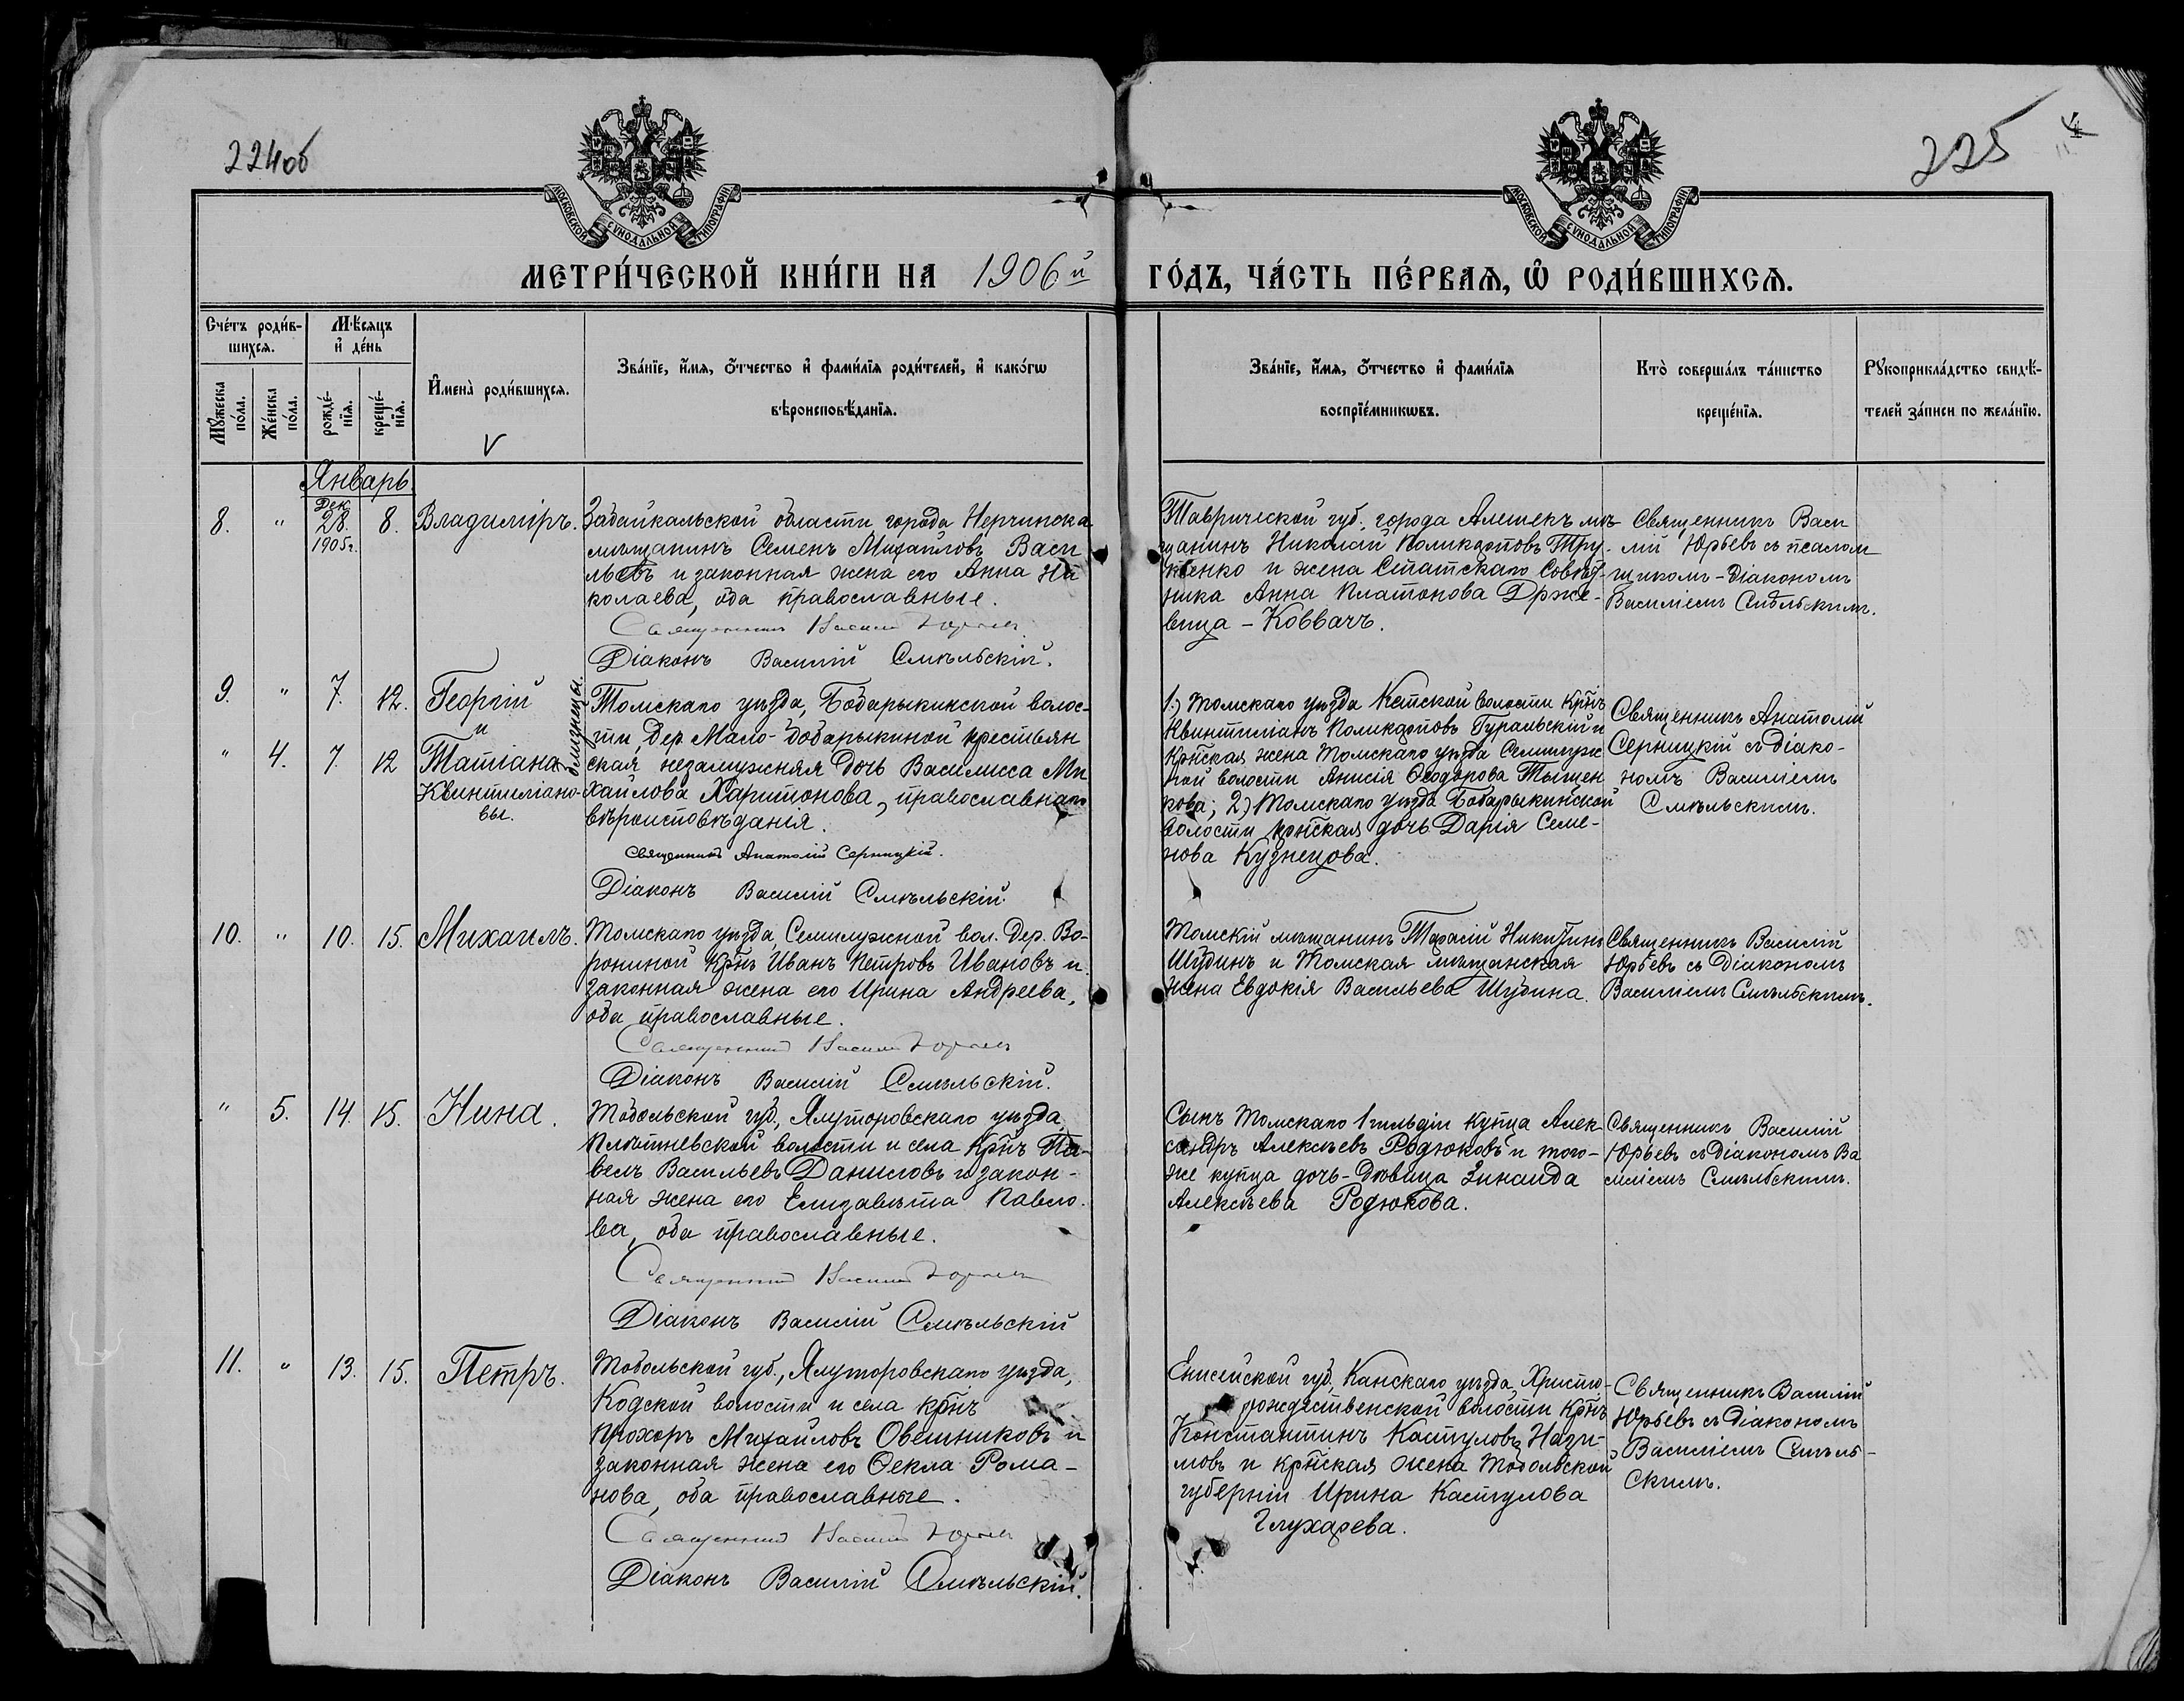 224об
225
МОСКОВСКОЙ СѴНОДАЛЬНОЙ ТИПОГРАФІИ
МОСКОВСКОЙ СѴНОДАЛЬНОЙ ТИПОГРАФІИ
МЕТРИ́ЧЕСКОЙ КНИ́ГИ НА 1906й ГО́ДЪ, ЧА́СТЬ ПЕ́РВАЯ, Ѡ҆ РОДИ́ВШИХСЯ.
Сче́тъ роди́в-
шихся.
Мѣ́сяцъ
и҆ де́нь
Мꙋ́жеска
по́ла.
Же́нска
по́ла.
рожде́-
нїя.
креще́-
нїя.
И҆мена̀ роди́вшихся.
Зва́нїе, и҆́мя, ѻ҆́тчество и҆ фами́лїя роди́телей, и҆ како́гѡ
вѣроисповѣ́данїя.
Зва́нїе, и҆́мя, ѻ҆́тчество и҆ фами́лїя
воспрїе́мникѡвъ.
Кто̀ соверша́лъ та́инство
креще́нїя.
Рꙋкоприкла́дство свидѣ́-
телей за́писи по жела́нїю.
Январь.
8. " Дек. 28. 1905г. 8. Владиміръ.
Забайкальской области города Нерчинска
мѣщанинъ Семенъ Михайловъ Васи
льевъ и законная жена его Анна Ни
колаева, оба православные.
Священникъ Василій Юрьевъ
Діаконъ Василій Смѣльскій.
Таврической губ. города Алешекъ мѣ-
щанинъ Николай Поликарповъ Тру-
тенко и жена Статскаго Совѣт-
ника Анна Платонова Држе-
вица - Коввачъ.
Священникъ Васи
лій Юрьевъ съ псалом
щикомъ - Діакономъ
Василіемъ Смѣльскимъ.
9. " 7. 12. Георгій
и
" 4. 7. 12 Татіана
Квинтиліано-
вы.
близнецы.
Томскаго уѣзда, Бобарыкинской волос-
ти, Дер. Мало-Бобарыкиной крестьян
ская незамужняя дочь Василисса Ми
хайлова Харитонова, православнаго
вѣроисповѣданія.
Священникъ Анатолій Серницкій.
Діаконъ Василій Смѣльскій.
1.) Томскаго уѣзда Кетской волости Крнъ
Квинтиліанъ Поликарповъ Гуральскій и
Крнская жена Томскаго уѣзда Семилуж
ной волости Анисія Ѳеодорова Тыщен
кова; 2.) Томскаго уѣзда Бобарыкинской
волости крнская дочь Дарія Семе-
нова Кузнецова.
Священникъ Анатолій
Серницкій съ Діако-
номъ Василіемъ
Смѣльскимъ.
10. " 10. 15. Михаилъ.
Томскаго уѣзда, Семилужной вол. Дер. Во-
рониной Крнъ Иванъ Петровъ Ивановъ и
законная жена его Ирина Андреева,
оба православные.
Священникъ Василій Юрьевъ
Діаконъ Василій Смѣльскій.
Томскій мѣщанинъ Тарасій Никитинъ
Шубинъ и Томская мѣщанская
жена Евдокія Васильева Шубина.
Священникъ Василій
Юрьевъ съ Діакономъ
Василіемъ Смѣльскимъ.
" 5. 14. 15. Нина.
Тобольской губ., Ялуторовскаго уѣзда,
Плетневской волости и села Крнъ Па-
велъ Васильевъ Даниловъ и закон-
ная жена его Елизавета Павло-
ва, оба православные.
Священникъ Василій Юрьевъ
Діаконъ Василій Смѣльскій
Сынъ Томскаго 1 гильдіи купца Алек-
сандръ Алексѣевъ Родюковъ и того-
же купца дочь-Дѣвица Зинаида
Алексѣева Родюкова.
Священникъ Василій
Юрьевъ съ Діакономъ Ва
силіемъ Смѣльскимъ.
11. " 13. 15. Петръ.
Тобольской губ., Ялуторовскаго уѣзда,
Кодской волости и села крнъ
Прохоръ Михайловъ Овешниковъ и
законная жена его Ѳекла Рома-
нова, оба православные.
Священникъ Василій Юрьевъ
Діаконъ Василій Смѣльскій.
Енисейской губ, Канскаго уѣзда, Христо-
рождественской волости Крнъ
Константинъ Кастуловъ Нази-
мовъ и крнская жена Тобольской
губерніи Ирина Кастулова
Глухарева.
Священникъ Василій
Юрьевъ съ Діакономъ
Василіемъ Смѣль-
скимъ.